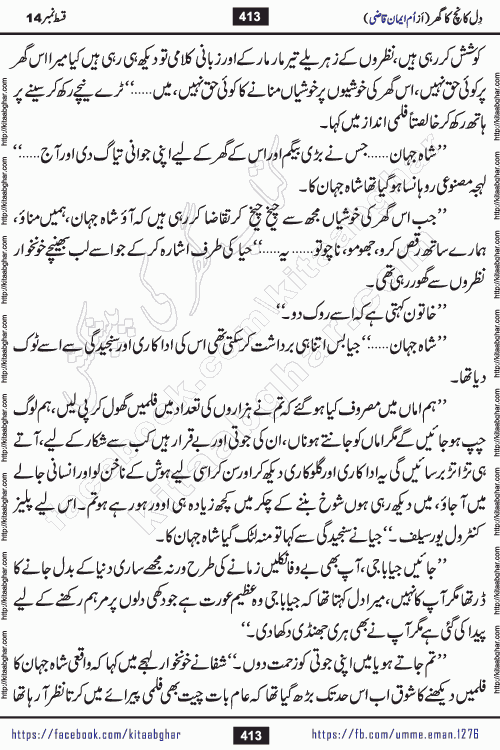 قسط نمبر 14
413
دِل کانچ کا گھر (از اُم ایمان قاضی)
کوشش کر رہی ہیں، نظروں کے زہریلے تیر مار مار کے اور زبانی کلامی تو دیکھ ہی رہی ہیں کیا میرا اس گھر
پر کوئی حق نہیں، اس گھر کی خوشیوں پر خوشیاں منانے کا کوئی حق نہیں، میں......‘‘ ٹرے نیچے رکھ کر سینے پر
ہاتھ رکھ کر خالصتاً فلمی انداز میں کہا۔
’’شاہ جہان......جس نے بڑی بیگم اور اس کے گھر کے لیے اپنی جوانی تیاگ دی اور آج......‘‘
لہجہ مصنوعی روہانسا ہو گیا تھا شاہ جہان کا۔
’’جب اس گھر کی خوشیاں مجھ سے چیخ چیخ کر تقاضا کر رہی ہیں کہ آؤ شاہ جہان، ہمیں مناؤ،
ہمارے ساتھ رقص کرو، جھومو، ناچو تو...... یہ......‘‘ حیا کی طرف اشارہ کر کے جو اسے لب بھینچے خونخوار
نظروں سے گھور رہی تھی۔
’’خاتون کہتی ہے کہ اسے روک دو۔‘‘
’’شاہ جہان......‘‘ جیا بس اتنا ہی برداشت کر سکتی تھی اس کی اداکاری اور سنجیدگی سے اسے ٹوک
دیا تھا۔
’’ہم اماں میں مصروف کیا ہو گئے کہ تم نے ہزاروں کی تعداد میں فلمیں گھول کر پی لیں، ہم لوگ
چپ ہو جائیں گے مگر اماں کو جانتے ہو ناں، ان کی جوتی اور بے قرار ہیں کب سے شکار کے لیے، آتے
ہی تڑا تڑ برسائیں گی یہ اداکاری اور گلوکاری دیکھ کر اور سن کر اسی لیے ہوش کے ناخن لو اور انسانی جالے
میں آ جاؤ، میں دیکھ رہی ہوں شوخ بننے کے چکر میں کچھ زیادہ ہی اوور ہو رہے ہو تم۔ اس لیے پلیز
کنٹرول یور سیلف۔‘‘ جیا نے سنجیدگی سے کہا تو منہ لٹک گیا شاہ جہان کا۔
’’جائیں جیا باجی، آپ بھی بے وفا نکلیں زمانے کی طرح ورنہ مجھے ساری دنیا کے بدل جانے کا
ڈر تھا مگر آپ کا نہیں، میرا دل کہتا تھا کہ جیا باجی وہ عظیم عورت ہے جو دکھی دلوں پر مرہم رکھنے کے لیے
پیدا کی گئی ہے مگر آپ نے بھی ہری جھنڈی دکھا دی۔‘‘
’’تم جاتے ہو یا میں اپنی جوتی کو زحمت دوں۔‘‘ شفا نے خونخوار لہجے میں کہا کہ واقعی شاہ جہان کا
فلمیں دیکھنے کا شوق اب اس حد تک بڑھ گیا تھا کہ عام بات چیت بھی فلمی پیرائے میں کرتا نظر آ رہا تھا
https://facebook.com/kitaabghar
413
https://fb.com/umme.eman.1276